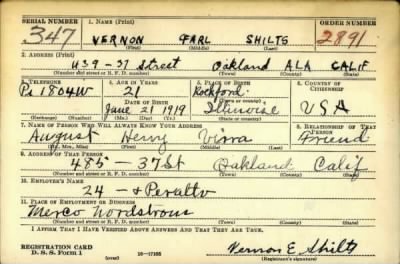 SERIAL NUMBER 1. NAME (Print) ORDER NUMBER
347 VERNON EARL SHILTS 2891
(First) (Middle) (Last)
2. ADDRESS (Print)
439 - 37 Street Oakland ALA CALIF
(Number and street or R. F. D. number) (Town) (County) (State)
3. TELEPHONE 4. AGE IN YEARS 5. PLACE OF BIRTH 6. COUNTRY OF CITIZENSHIP
Pi 1804W 21 Rockford
DATE OF BIRTH (Town or county)
June 21 1919 Illinoise USA
(Exchange) (Number) (Mo.) (Day) (Yr.) (State or country)
7. NAME OF PERSON WHO WILL ALWAYS KNOW YOUR ADDRESS 8. RELATIONSHIP OF THAT PERSON
August Henry Friend
(Mr., Mrs., Miss) (First) (Middle) (Last)
9. ADDRESS OF THAT PERSON
485 - 37 St Oakland Calif
(Number and street or R. F. D. number) (Town) (County) (State)
10. EMPLOYER'S NAME
24 - & Peralto
11. PLACE OF EMPLOYMENT OR BUSINESS
Merco Nordstrom
(Number and street or R. F. D. number) (Town) (County) (State)
I AFFIRM THAT I HAVE VERIFIED ABOVE ANSWERS AND THAT THEY ARE TRUE.
REGISTRATION CARD
D. S. S. Form 1 (over) 16-17105 Vernon E Shilts
(Registrant's signature)